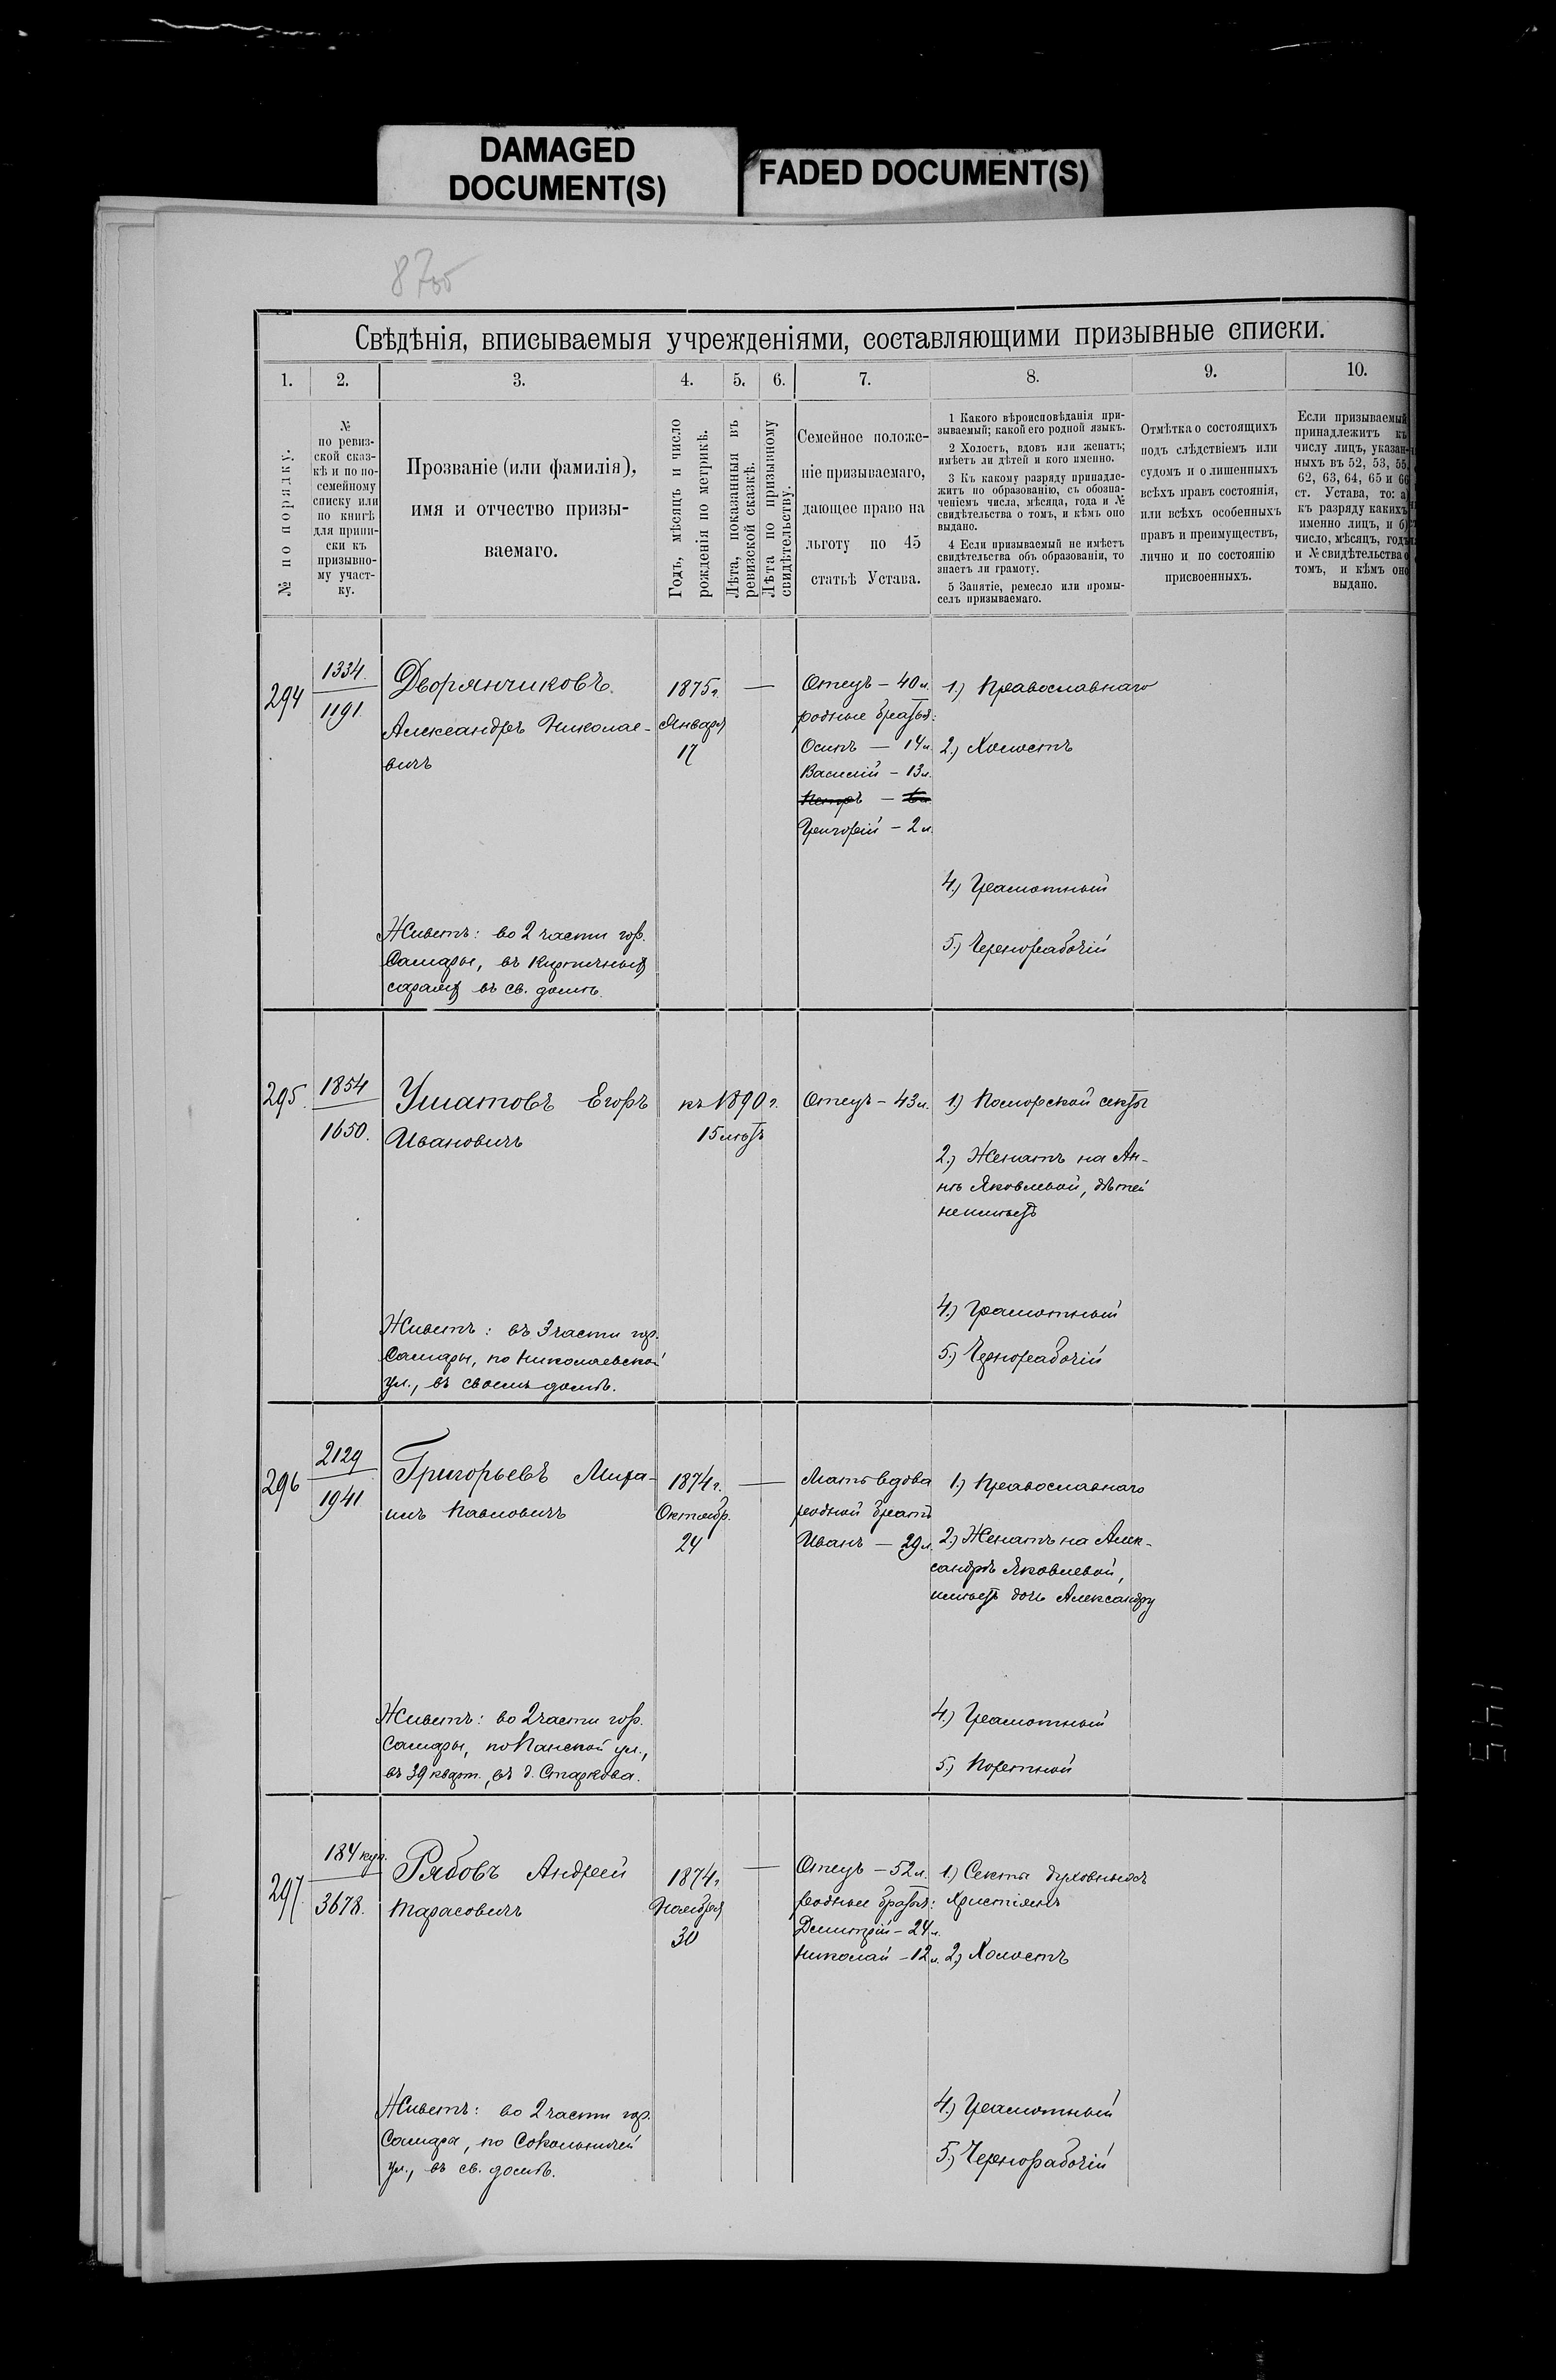 DAMAGED
DOCUMENT(S)
FADED DOCUMENT(S)
Свѣдѣнія, вписываемыя учрежденіями, составляющими призывные списки.
1. 2. 3. 4. 5. 6. 7. 8. 9. 10.
№ по порядку.
№
по ревиз-
ской сказ-
кѣ и по по-
семейному
списку или
по книгѣ
для припи-
ски къ
призывно-
му участ-
ку.
Прозваніе (или фамилія),
имя и отчество призы-
ваемаго.
Годъ, мѣсяцъ и число
рожденія по метрикѣ.
Лѣта, показанныя въ
ревизской сказкѣ.
Лѣта по призывному
свидѣтельству.
Семейное положе-
ніе призываемаго,
дающее право на
льготу по 45
статьѣ Устава.
1 Какого вѣроисповѣданія при-
зываемый; какой его родной языкъ.
2 Холостъ, вдовъ или женатъ;
имѣетъ ли дѣтей и кого именно.
3 Къ какому разряду принадле-
житъ по образованію, съ обозна-
ченіемъ числа, мѣсяца, года и №
свидѣтельства о томъ, и кѣмъ оно
выдано.
4 Если призываемый не имѣетъ
свидѣтельства объ образованіи, то
знаетъ ли грамоту.
5 Занятіе, ремесло или промы-
селъ призываемаго.
Отмѣтка о состоящихъ
подъ слѣдствіемъ или
судомъ и о лишенныхъ
всѣхъ правъ состоянія,
или всѣхъ особенныхъ
правъ и преимуществъ,
лично и по состоянію
присвоенныхъ.
Если призываемый
принадлежитъ къ
числу лицъ, указан-
ныхъ въ 52, 53, 55,
62, 63, 64, 65 и 66
ст. Устава, то: а)
къ разряду какихъ
именно лицъ, и б)
число, мѣсяцъ, годъ
и № свидѣтельства о
томъ, и кѣмъ оно
выдано.
294
1334.
1191.
Дворянчиковъ.
Александръ Николае-
вичъ
Живетъ: во 2 части гор.
Самары, въ Кирпичныхъ
сараяхъ въ св. домѣ.
1875 г.
Января
17
—
Отецъ – 40 л.
родные братья:
Осипъ — 14 л.
Василій – 13 л.
Петръ — 6 л.
Григорій – 2 л.
1.) Православнаго
2.) Холостъ
4.) Грамотный
5.) Чернорабочій
295.
1854
1650.
Ушатовъ Егоръ
Ивановичъ
Живетъ: въ 3 части гор.
Самары, по Николаевской
ул., въ своемъ домѣ.
къ 1890 г.
15 лѣтъ
Отецъ – 43 л.
1) Поморской секты
2.) Женатъ на Ан-
нѣ Яковлевой, дѣтей
неимѣетъ
4.) Грамотный
5.) Чернорабочій
296
2129
1941
Григорьевъ Миха-
илъ Павловичъ
Живетъ: во 2 части гор.
Самары, по Панской ул.,
въ 39 кварт., въ д. Старкова.
1874 г.
Октябр.
24
—
Мать вдова
родной братъ
Иванъ — 29 л.
1.) Православнаго
2.) Женатъ на Алек-
сандрѣ Яковлевой,
имѣетъ дочь Александру
4.) Грамотный
5.) Портной
297
184 куп.
3678.
Рябовъ Андрей
Тарасовичъ
Живетъ: во 2 части гор.
Самара, по Сокольничей
ул., въ св. домѣ.
1874 г.
Ноября
30
—
Отецъ – 52 л.
родные братья:
Дмитрій – 24 л.
Николай – 12 л.
1.) Секты духовныхъ
христіянъ
2.) Холостъ
4.) Грамотный
5.) Чернорабочій
145